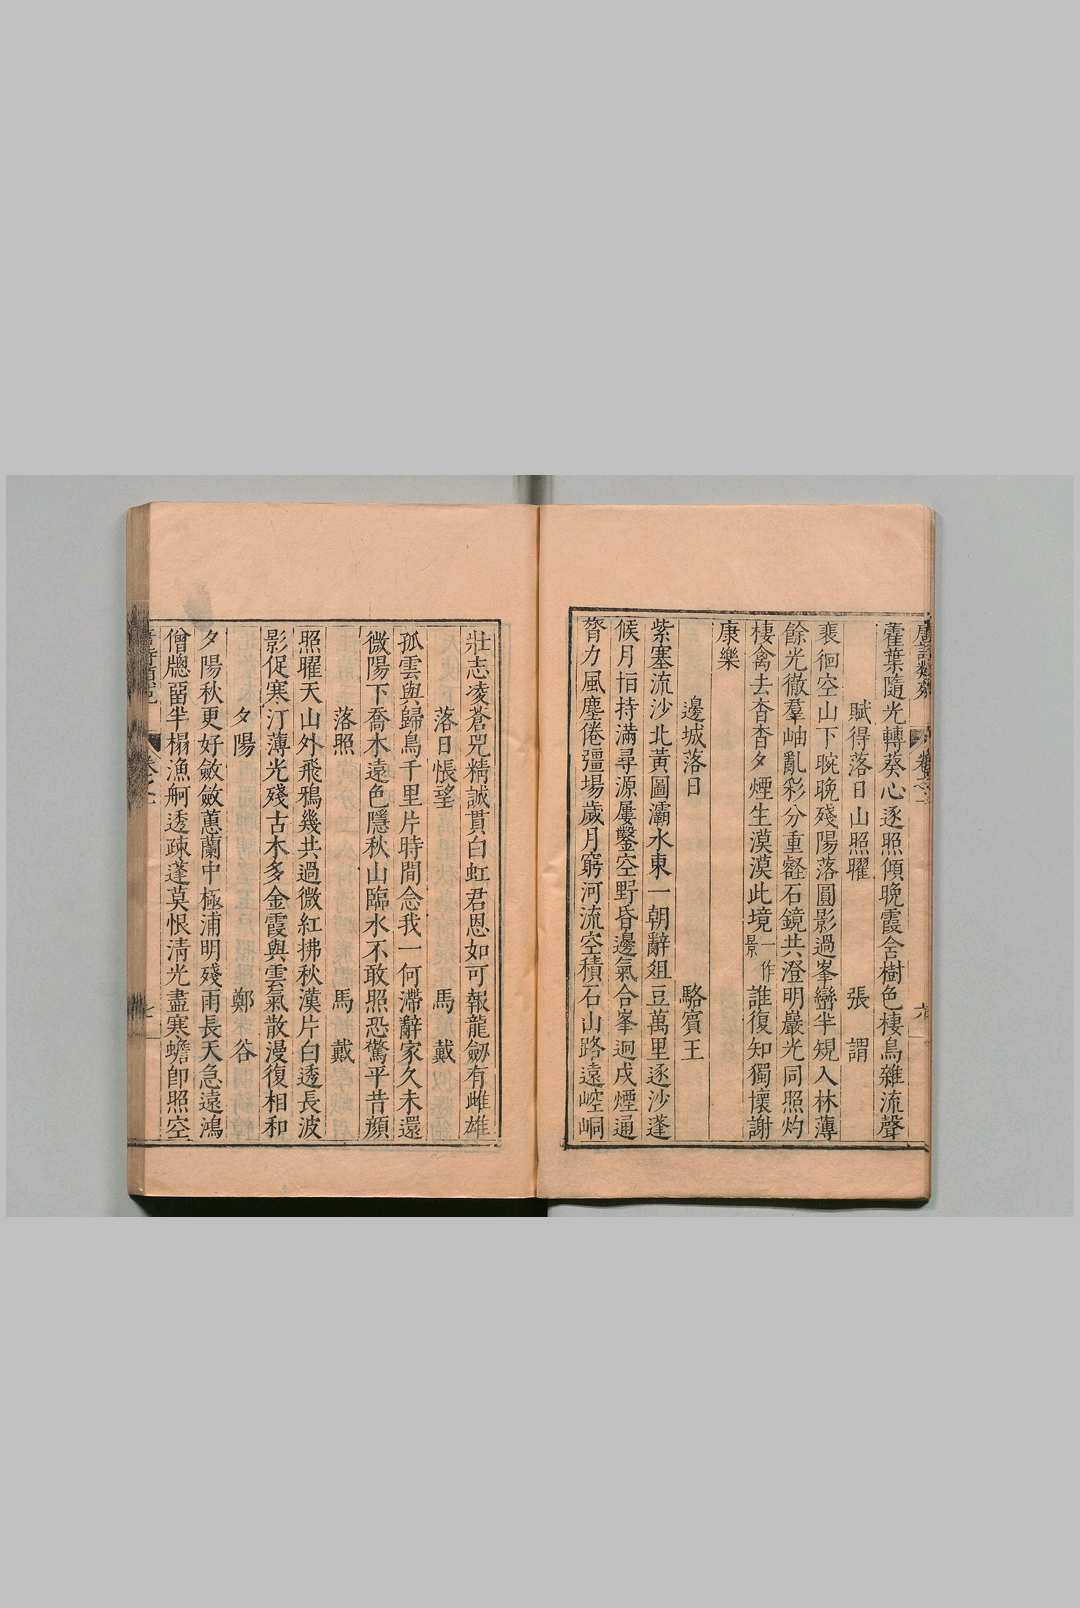 藿葉隨光轉葵心逐照傾晚霞含樹色棲鳥雜流聲
賦得落日山照曜　張　謂
裵徊空山下晼晚殘陽落圓影過峯巒半規入林薄
餘光徹羣岫亂彩分重壑石鏡共澄明巖光同照灼
棲禽去杳杳夕煙生漠漠此境一作景誰復知獨懷謝
康樂
邊城落日　駱賓王
紫塞流沙北黃圖灞水東一朝辭俎豆萬里逐沙蓬
候月恒持滿尋源屢鑿空野昏邊氣合峯迥戍煙通
膂力風塵倦疆場歲月窮河流空積石山路遠崆峒
壯志凌蒼兕精誠貫白虹君恩如可報龍劒有雌雄
落日悵望　馬　戴
孤雲與歸鳥千里片時間念我一何滯辭家久未還
微陽下喬木遠色隱秋山臨水不敢照恐驚平昔顏
落照　馬　戴
照曜天山外飛鴉幾共過微紅拂秋漢片白透長波
影促寒汀薄光殘古木多金霞與雲氣散漫復相和
夕陽　鄭　谷
夕陽秋更好斂斂蕙蘭中極浦明殘雨長天急遠鴻
僧牎留半榻漁舸透疎蓬莫恨清光盡寒蟾卽照空